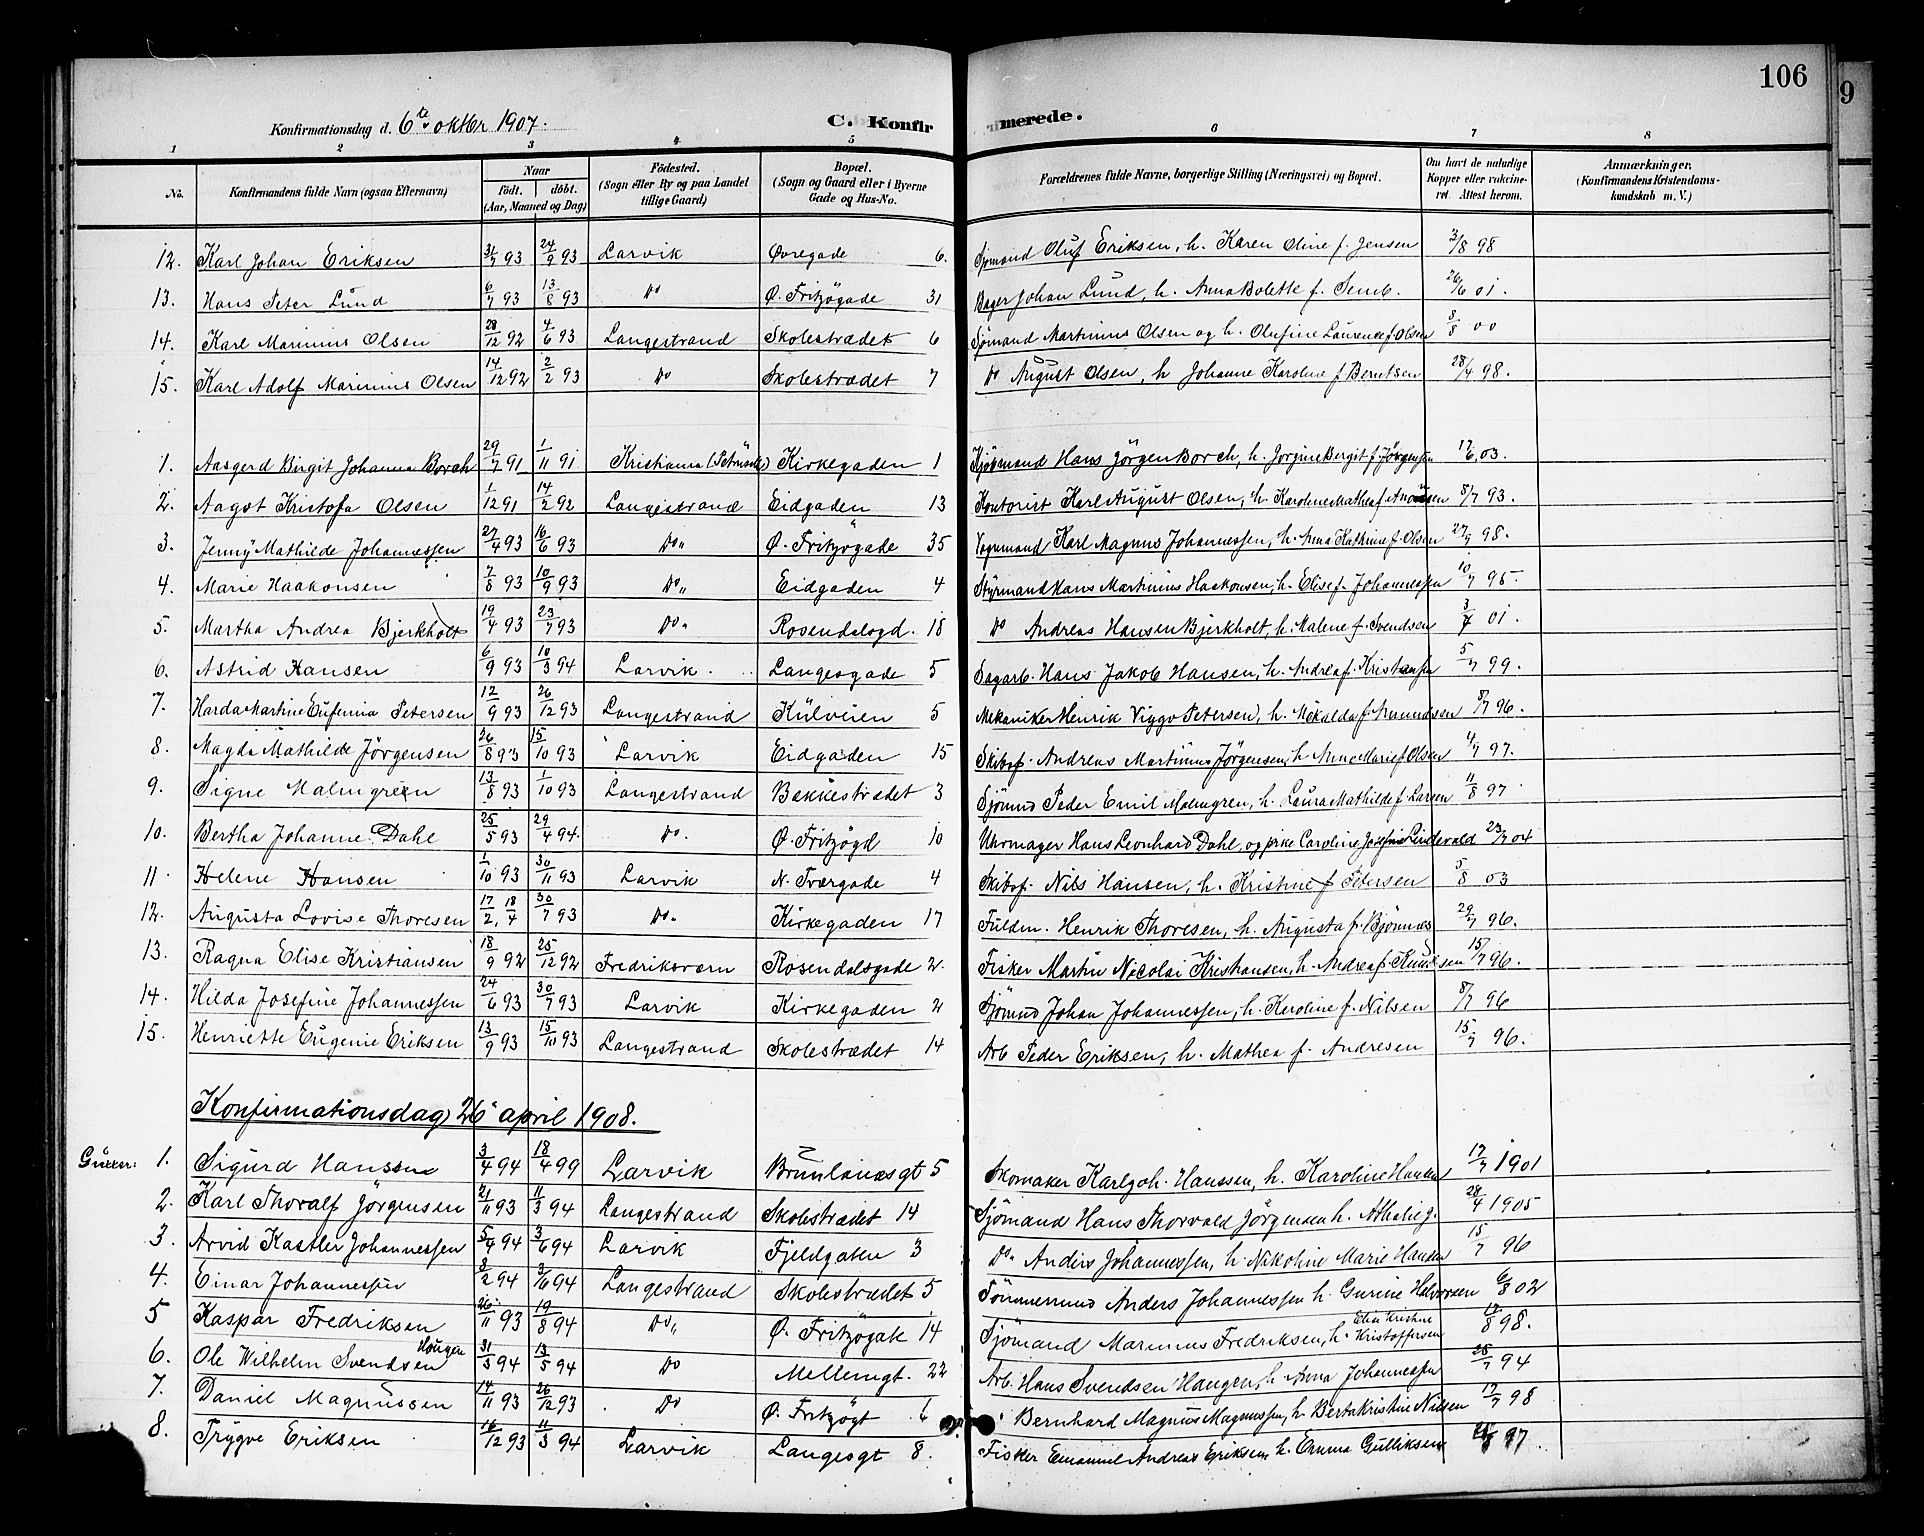 106
9
Konfirmationsdag d. 6te oktbr 1907.
C. Konfirmerede.
1 2 3 4 5 6 7 8
No. Konfirmandens fulde Navn (ogsaa Efternavn) Naar födt. döbt. (Aar, Maaned og Dag) Födested. (Sogn eller By og paa Landet tillige Gaard) Bopæl. (Sogn og Gaard eller i Byerne Gade og Hus-No. Forældrenes fulde Navne, borgerlige Stilling (Næringsvei) og Bopæl. Om havt de naturlige Kopper eller vaccineret. Attest herom. Anmærkninger. (Konfirmandens Kristendomskundskab m. V.)
12. Karl Johan Eriksen 31/7 93 24/9 93 Larvik Øvregade 6. Sjømand Oluf Eriksen, h. Karen Oline f. Jensen 3/8 98
13. Hans Peter Lund 6/7 93 13/8 93 Do Ø. Fritzögade 31 Bager Johan Lund, h. Anna Bolette f. Semb. 26/6 01.
14. Karl Marinius Olsen 28/12 92 4/6 93 Langestrand Skolestrædet 6 Sjømand Martinius Olsen og h. Olufine Laurence f. Olsen 8/8 00
15. Karl Adolf Marinius Olsen 14/12 92 2/2 93 Do Skolestrædet 7 Do August Olsen, h Johanne Karoline f. Berntsen 28/4 98.
1. Aasgerd Birgit Johanna Borch 29/7 91 1/11 91 Kristiania Kirkegaden 1 Kjøbmand Hans Jörgen Borch, h. Jorgine Bergit f. Jörgensen 17/6 03.
2. Aagot Kristofa Olsen 1/12 91 14/2 92 Langestrand Eidgaden 13 Kontorist Karl August Olsen, h. Karoline Mathea f. 8/7 93.
3. Jenny Mathilde Johannessen 27/4 93 16/6 93 Do „ Ø. Fritzögade 35 Vognmand Karl Magnus Johannessen, h. Anna Kathrine f. Olsen 27/9 98.
4. Marie Haakonsen 7/8 93 10/9 93 Do „ Eidgaden 4 Styrmand Hans Martinius Haakonsen, h. Elise f. Johannessen 10/7 95.
5. Martha Andrea Bjerkholt 19/4 93 23/7 93 Do „ Rosendalsgd. 18 Do Andreas Hansen Bjerkholt, h. Malene f. Svendsen 3/7 01.
6. Astrid Hansen 6/9 93 10/3 94 Larvik Langesgade 5 Sagarb. Hans Jakob Hansen, h. Andrea f. Kristiansen 5/7 99.
7. Harda Martine Eufemia Petersen 12/9 93 26/12 93 Langestrand Kulveien 5 Mekaniker Henrik Viggo Petersen, h. Mekalda f. Amundsen 8/7 96.
8. Magda Mathilde Jörgensen 26/8 93 15/10 93 Larvik Eidgaden 15 Skibsf. Andreas Martinius Jörgensen, h. Anne Marie f. Olsen 4/7 97.
9. Signe Malmgreen 13/8 93 1/10 93 Langestrand Bakkestrædet 3 Sjömd Peder Emil Malmgren, h. Laura Mathilde f. Larsen 11/8 97
10. Bertha Johanne Dahl 25/5 93 29/4 94. Do. Ø. Fritzögd 10 Uhrmager Hans Leonhard Dahl, og pike Caroline Josefine Lindevald 23/7 04
11. Helene Hansen 1/10 93 30/11 93 Larvik N. Tvergade 4 Skibsf. Nils Hansen, h. Kristine f Petersen 5/8 03
12. Augusta Lovise Thoresen 17/2, 18/4 30/7 93 Do. Kirkegaden 17 Fuldm. Henrik Thoresen, h. Augusta f. Bjönnes 29/7 96.
13. Ragna Elise Kristiansen 18/9 92 25/12 92 Fredriksværn Rosendalsgade 2. Fisker Martin Nicolai Kristiansen, h. Andrea f. Knudsen 15/7 96.
14. Hilda Josefine Johannessen 24/6 93 30/7 93 Larvik Kirkegaden 2 Sjömd Johan Johannessen, h. Karoline f. Nilsen 8/7 96
15. Henriette Eugenie Eriksen 13/9 93 15/10 93 Langestrand Skolestrædet 14 Arb Peder Eriksen, h. Mathea f. Andresen 15/7 96.
Konfirmationsdag 26 april 1908.
Gutter: 1. Sigurd Hanssen 3/4 94 18/4 99 Larvik Brunlanesgt 5 Skomaker Karl Joh. Hanssen, h. Karoline Hansen 17/7 1901
2. Karl Thoralf Jörgensen 21/11 93 11/3 94 Langestrand Skolestrædet 14 Sjömand Hans Thorvald Jörgensen h. Athalie J. 28/4 1905
3. Arvid Kastler Johannessen 5/4 94 3/6 94 Larvik Fjeldgaten 3 Do. Anders Johannessen, h. Nikoline Marie Hansen 15/7 96
4. Einar Johannessen 8/2 94 3/6 94 Langestrand Skolestrædet 5 Tömmermand Anders Johannessen h. Gurine Halvorsen 6/8 02
5 Kaspar Fredriksen 26/11 93 19/8 94 Do „ Ø. Fritzögate 14 Sjömand Marinius Fredriksen, h. Elise Kristine Kristoffersen 12/8 98.
6. Ole Wilhelm Svendsen Haugen 31/3 94 13/5 94 Do Mellemgt. 22 Arb. Hans Svendsen Haugen, h Anna Johannessen 28/7 94
7. Daniel Magnussen 14/11 93 26/12 93 Do Ø. Fritzögt 6 Bernhard Magnus Magnussen, h Berta Kristine Nilsen 17/7 98
8. Trygve Eriksen 16/12 93 11/3 94 Larvik Langesgt 8. Fisker Emanuel Andreas Eriksen, h. Emma Gulliksen 97